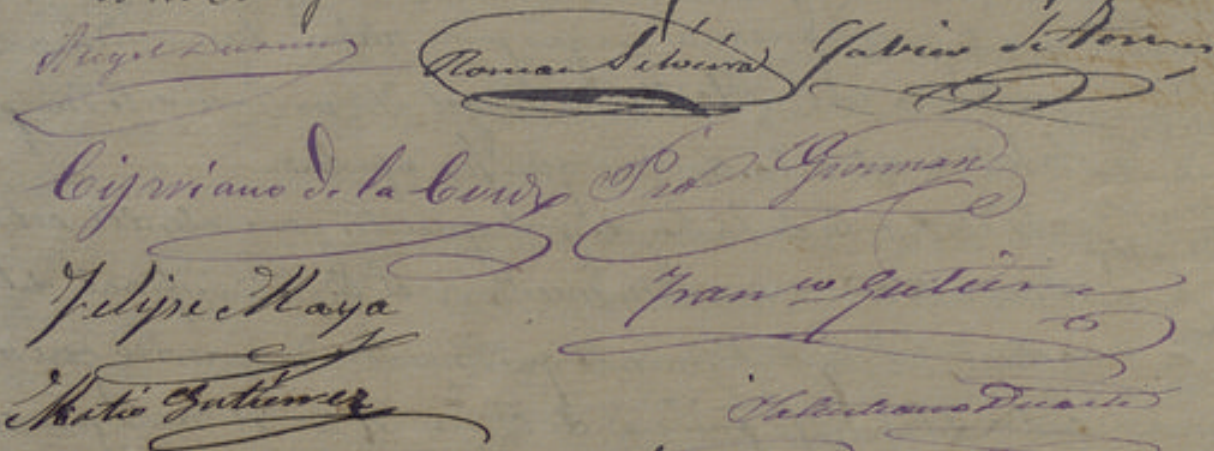 Angel Duran
Roman Silveira Fabian de Torres
Cipriano de la Cruz Pio Guzman
Felipe Maya Franco Gutierrez
Matio Gutierrez Duarte